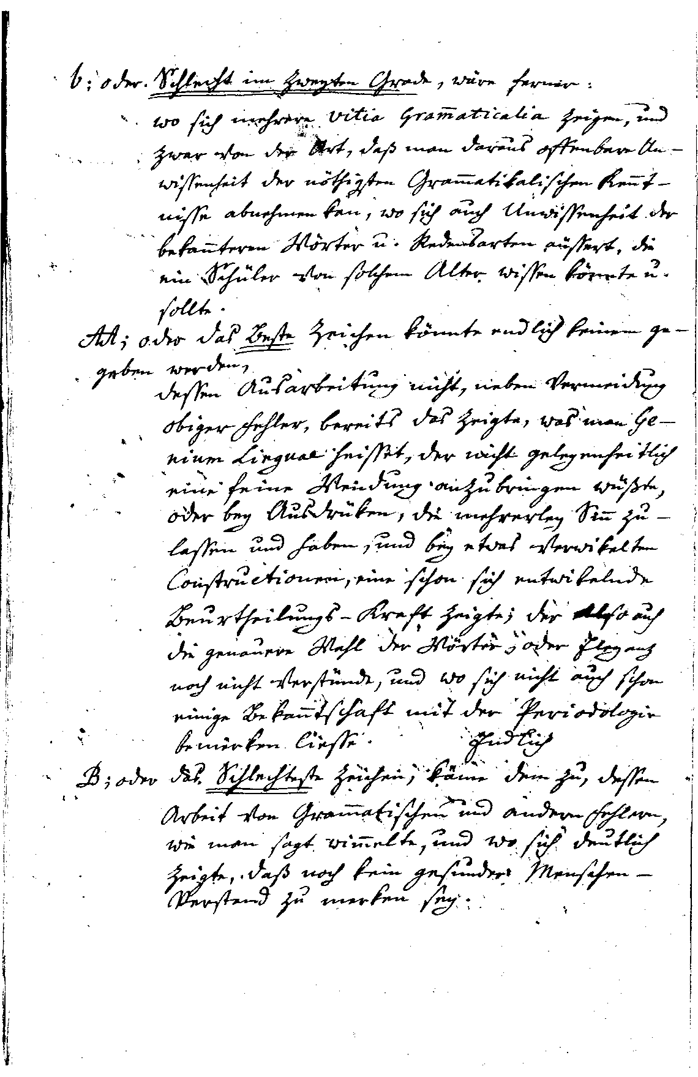 b; oder. Schlecht im zweyten Grade, wäre ferner:
wo sich mehrere vitia Gram̅aticalia zeigen, und
zwar von der Art, daß man daraus offenbare Un-
wissenheit der nöthigsten Gram̅atikalischen Ken̅t-
nisse abnehmen kan, wo sich auch Unwissenheit der
bekan̅teren Wörter u. Redensarten äussert, die
ein Schüler von solchem Alter wissen könnte u.
sollte.
AA; oder das Beste Zeichen könnte endlich keinem ge-
geben werden,
dessen Ausarbeitung nicht, neben Vermeidung
obiger Fehler, bereits das zeigte, was man Ge-
nium Linguae heisset, der nicht gelegenheitlich
eine feine Wendung anzubringen wüßte,
oder bey Ausdrüken, die mehrerley Sin̅ zu-
lassen und haben, und bey etwas verwikelten
Constructionen, eine schon sich entwikelnde
Beurtheilungs-Kraft zeigte; der also auch
die genauere Wahl der Wörter, oder Eleganz
noch nicht verstünde, und wo sich nicht auch schon
einige Bekan̅tschaft mit der Periodologie
bemerken liesse. Endlich
B; oder das Schlechteste Zeichen, käme dem zu, dessen
Arbeit von Gram̅atischen und andern Fehlern,
wie man sagt wim̅elte, und wo sich deutlich
zeigte, daß noch kein gesunder Menschen-
Verstand zu merken sey.